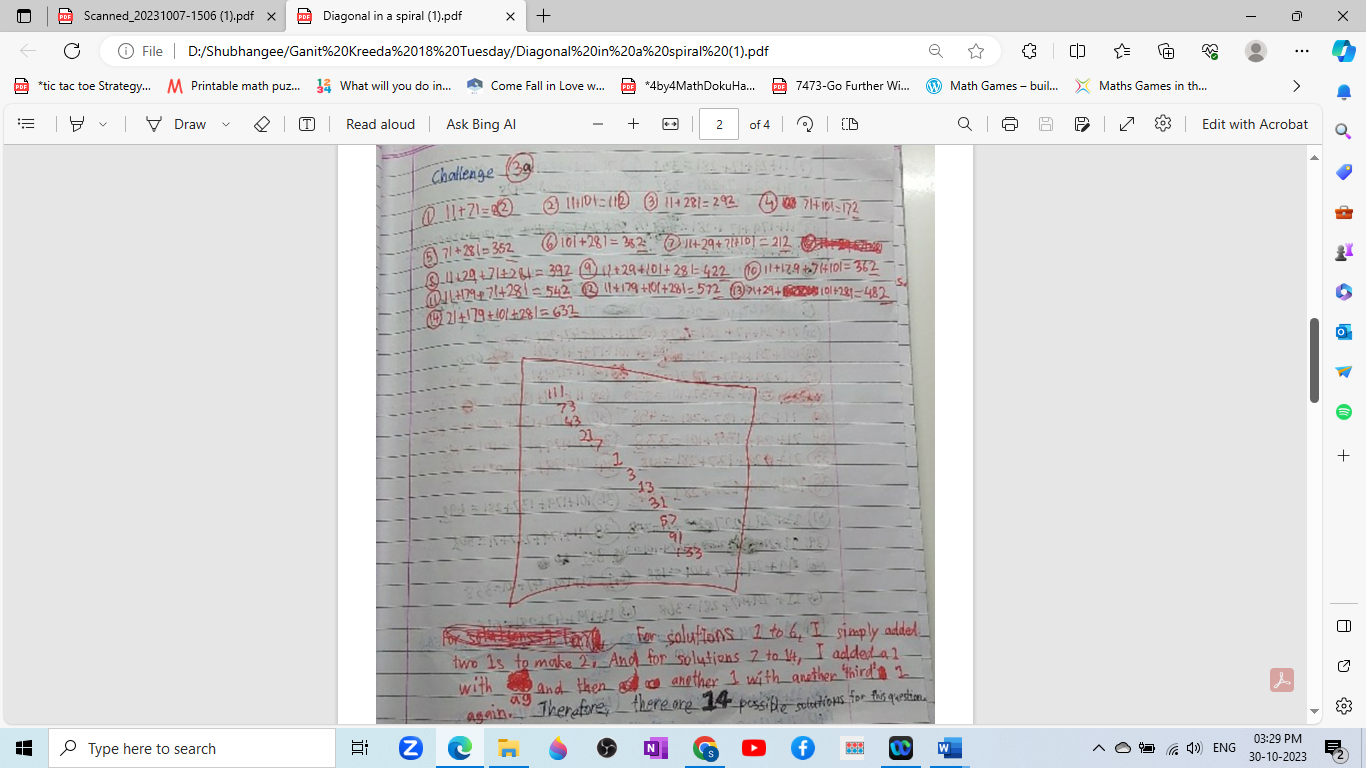 Scanned_20231007-1506 (1).pdf
Diagonal in a spiral (1).pdf
File D:/Shubhangee/Ganit%20Kreeda%2018%20Tuesday/Diagonal%20in%20a%20spiral%20(1).pdf
*tic tac toe Strategy... Printable math puz... What will you do in... Come Fall in Love w... *4by4MathDokuHa... 7473-Go Further Wi... Math Games – buil... Maths Games in th...
Draw Read aloud Ask Bing AI 2 of 4 Edit with Acrobat
Challenge 3a
① 11+71=82 ② 11+101=112 ③ 11+281=292 ④ 71+101=172
⑤ 71+281=352 ⑥ 101+281=382 ⑦ 11+29+71+101=212
⑧ 11+29+71+281=392 ⑨ 11+29+101+281=422 ⑩ 11+179+71+101=362
⑪ 11+179+71+281=542 ⑫ 11+179+101+281=572 ⑬ 71+29+101+281=482
⑭ 71+179+101+281=632
111
73
43
21
7
1
3
13
31
57
91
133
For solutions 1 to 6, I simply added
two 1s to make 2. And for solutions 7 to 14, I added a 1
with a 9 and then another 1 with another 'third' 1
again. Therefore, there are 14 possible solutions for this question.
Type here to search
ENG
03:29 PM
30-10-2023
2